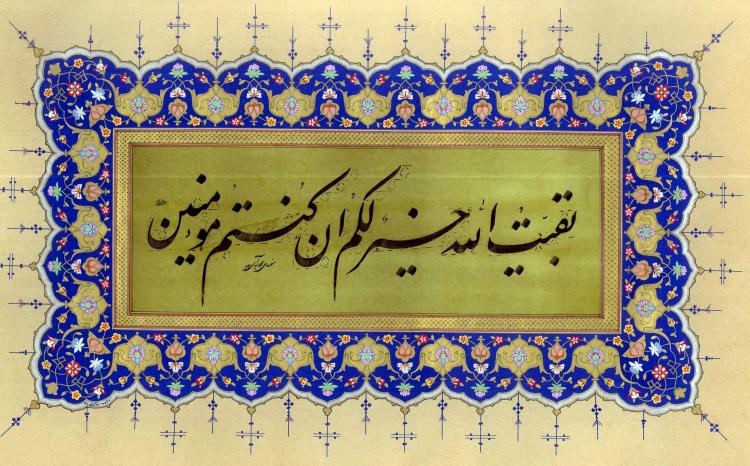 بقیت الله خیر لکم ان کنتم مومنین